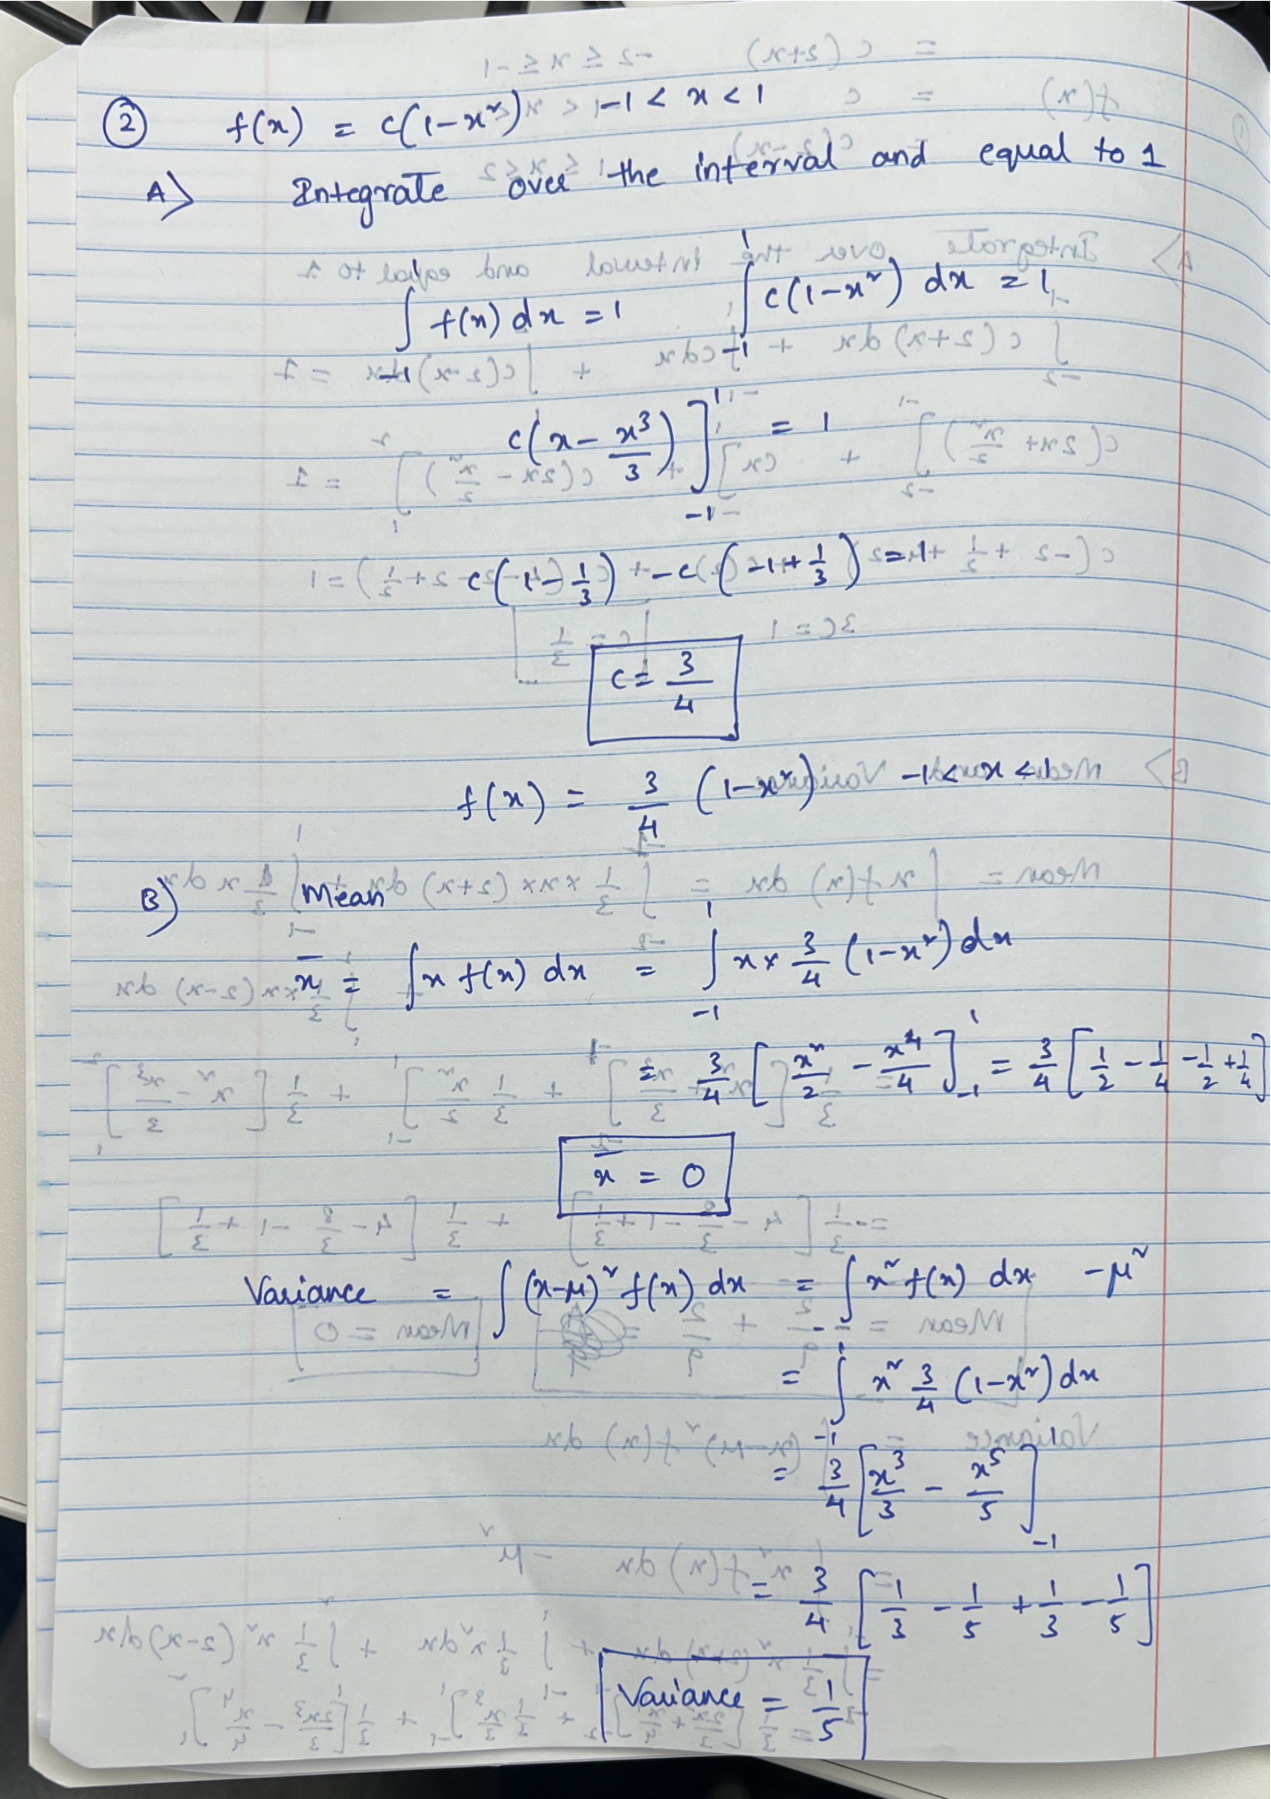 ② f(x) = c(1-x²) -1 < x < 1
A> Integrate over the interval and equal to 1
∫₋₁ f(x) dx = 1 ∫₋₁¹ c(1-x²) dx = 1
c(x - x³/3)]₋₁¹ = 1
c(1 - 1/3) - c(-1 + 1/3) = 1
c = 3/4
f(x) = 3/4 (1-x²) -1 < x < 1
B) Mean
x̄ = ∫x f(x) dx = ∫₋₁¹ x × 3/4 (1-x²) dx
= 3/4 [x²/2 - x⁴/4]₋₁¹ = 3/4 [1/2 - 1/4 - 1/2 + 1/4]
x̄ = 0
Variance = ∫(x-μ)² f(x) dx = ∫x² f(x) dx - μ²
= ∫₋₁¹ x² 3/4 (1-x²) dx
= 3/4 [x³/3 - x⁵/5]₋₁
= 3/4 [1/3 - 1/5 + 1/3 - 1/5]
Variance = 1/5